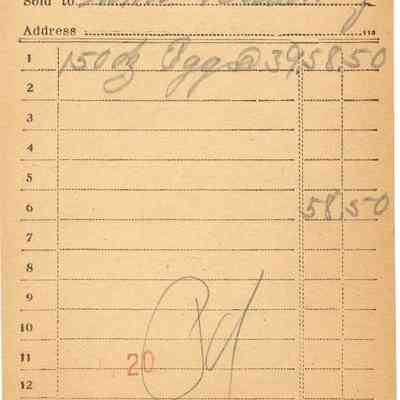 Sold to
Address
1 150 dz Eggs @ 39 58.50
2
3
4
5
6 58.50
7
8
9
10
11 20
12
Pd